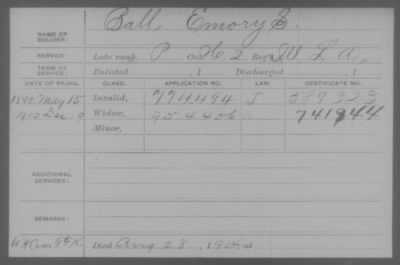 NAME OF SOLDIER: Ball, Emory E.
SERVICE: Late rank, P Co. H, 2 Reg't Ill. L A,
TERM OF SERVICE: Enlisted , 1 Discharged , 1
DATE OF FILING. CLASS. APPLICATION NO. LAW. CERTIFICATE NO.
May 15 Invalid, 774494 J 589323
1910 Dec. 9 Widow, 954456 741944
Minor,
ADDITIONAL SERVICES:
REMARKS:
Died Aug 28, at